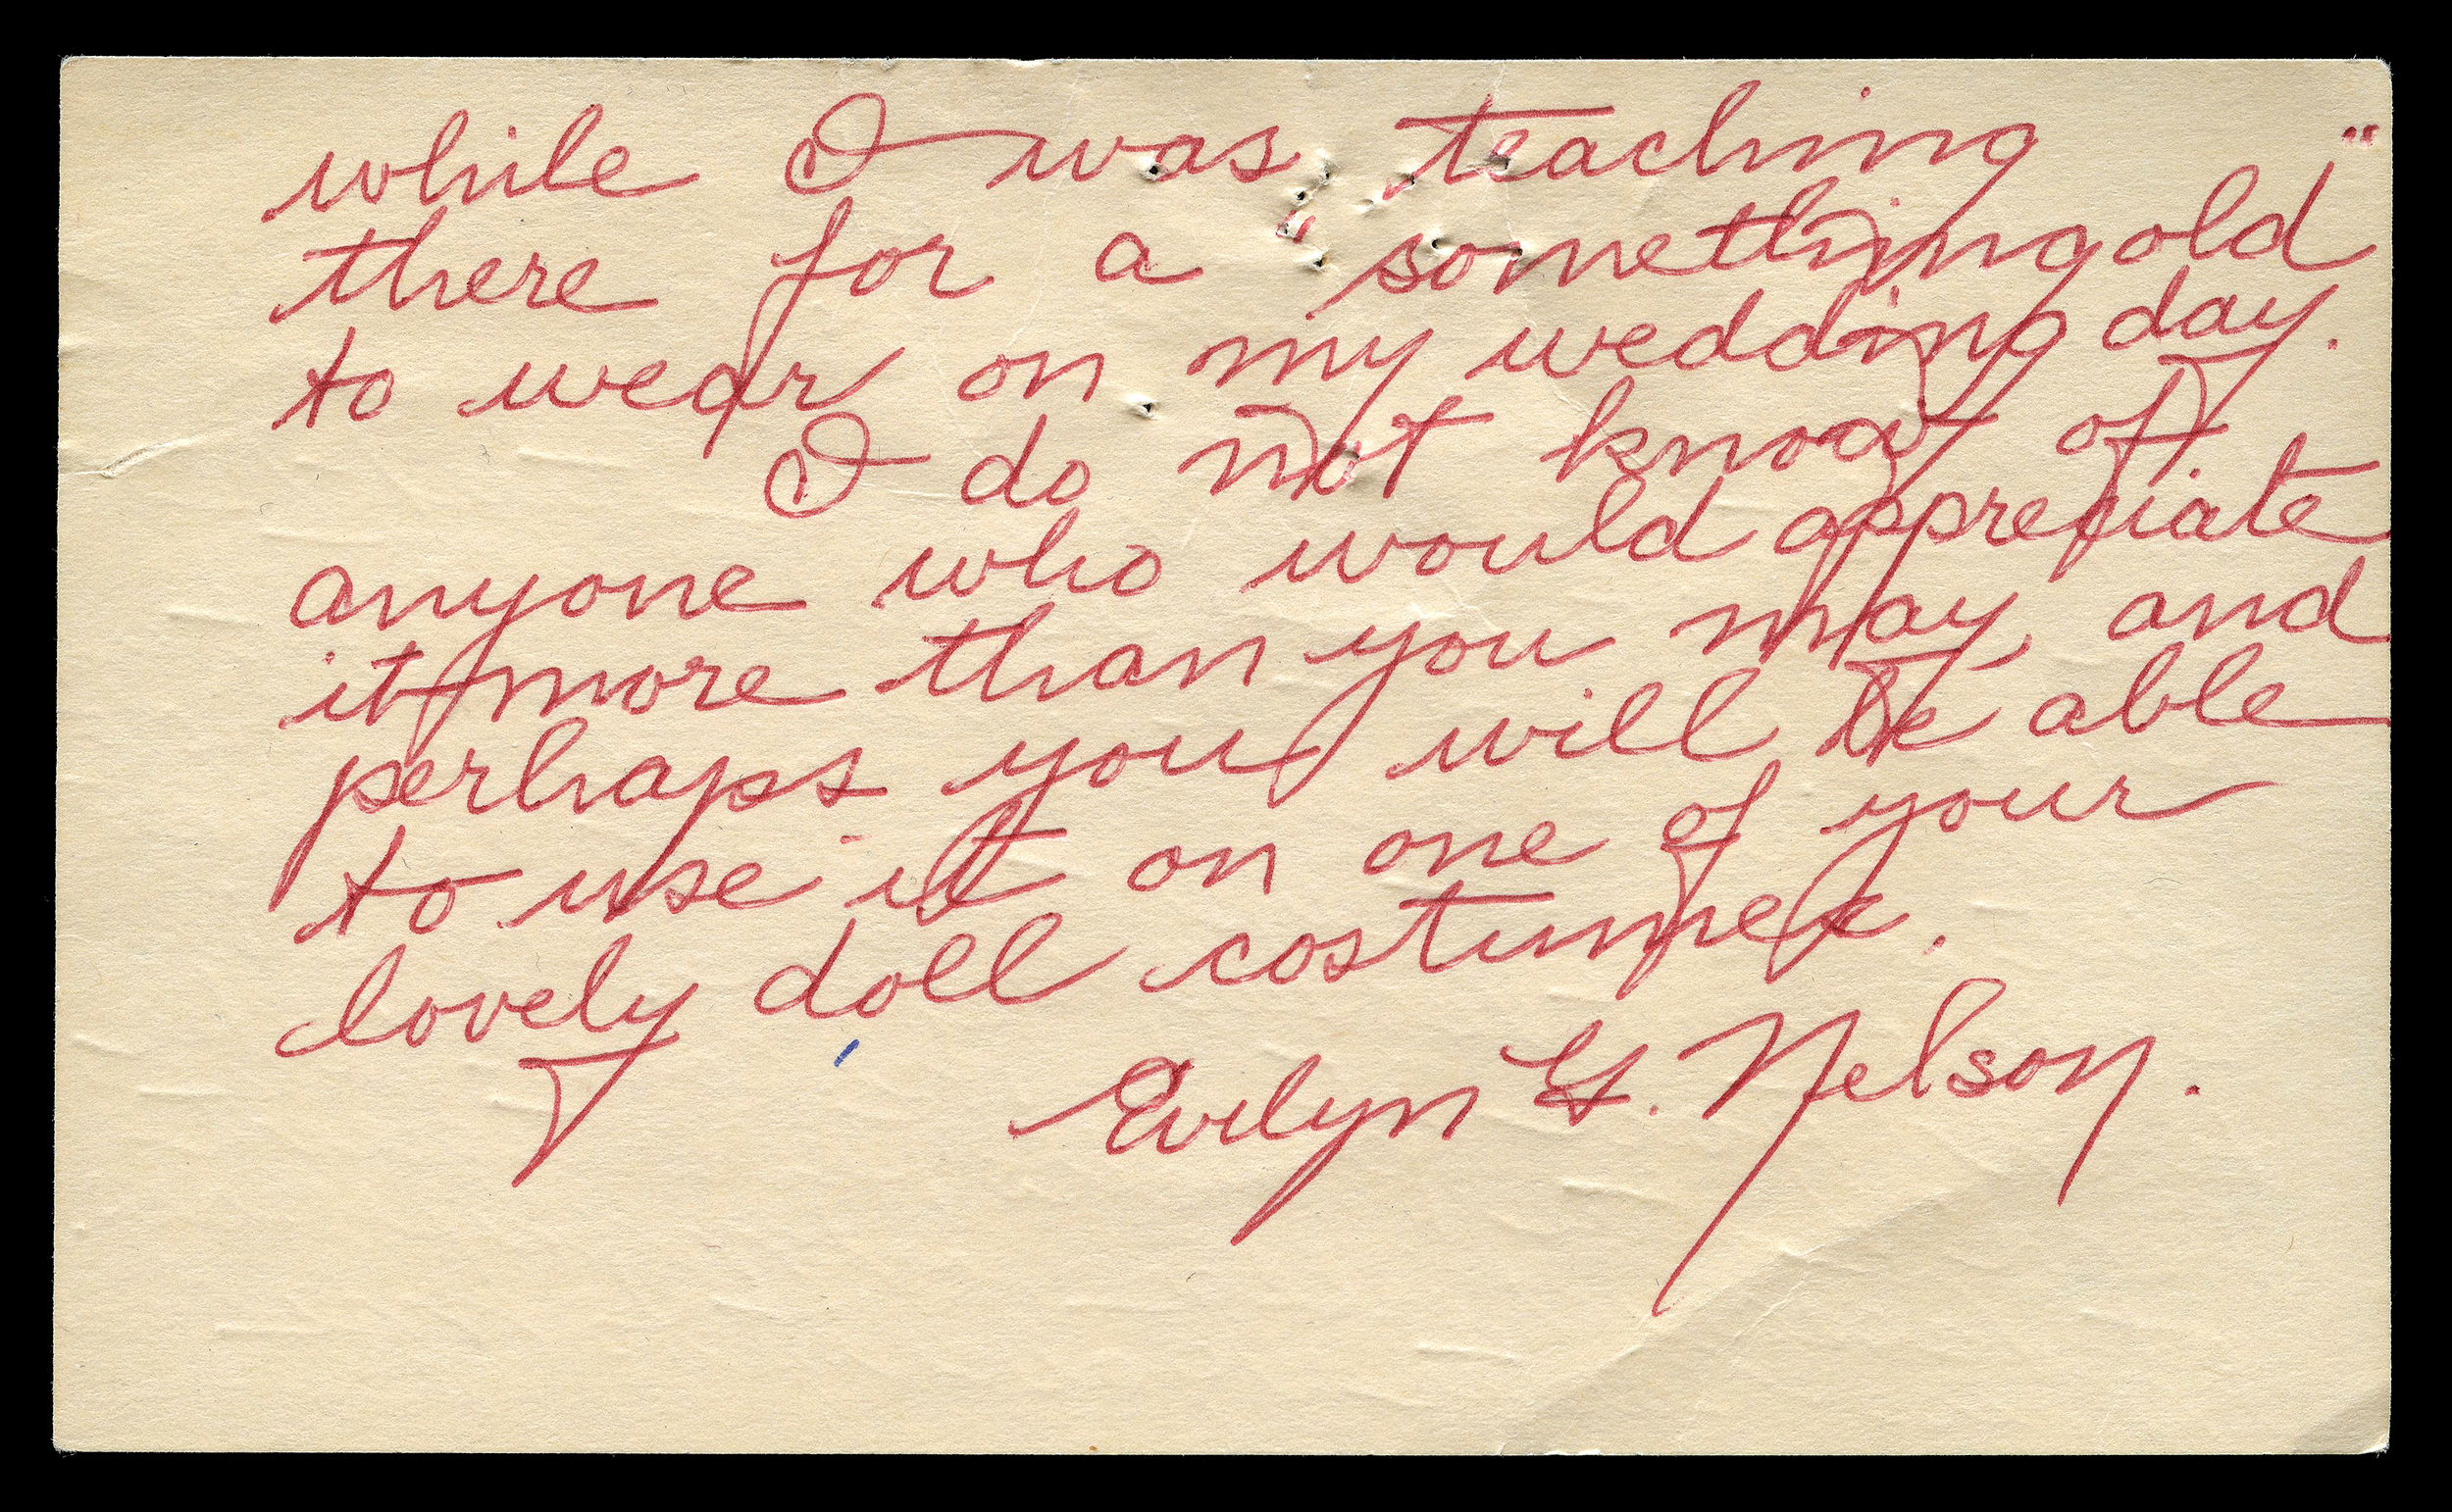 while I was teaching
there for a "something old"
to wear on my wedding day.
I do not know of
anyone who would appreciate
it more than you may, and
perhaps you will be able
to use it on one of your
lovely doll costumes.
Evelyn G. Nelson.